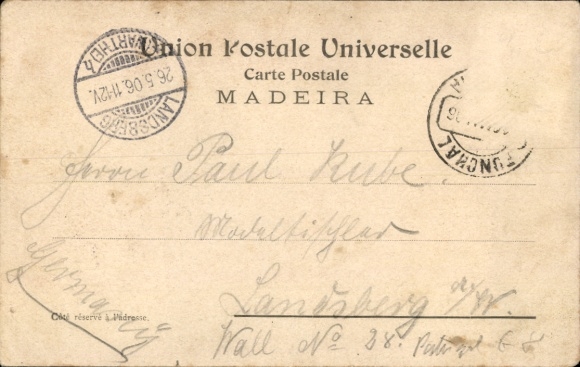 Union Postale Universelle
Carte Postale
MADEIRA
LANDSBERG
(WARTHE) a
26.5.06.11-12V.
FUNCHAL
Herrn Paul Kube.
Modeltischler
Germany
Landsberg a/W.
Côté réservé à l'adresse.
Wall No 28.